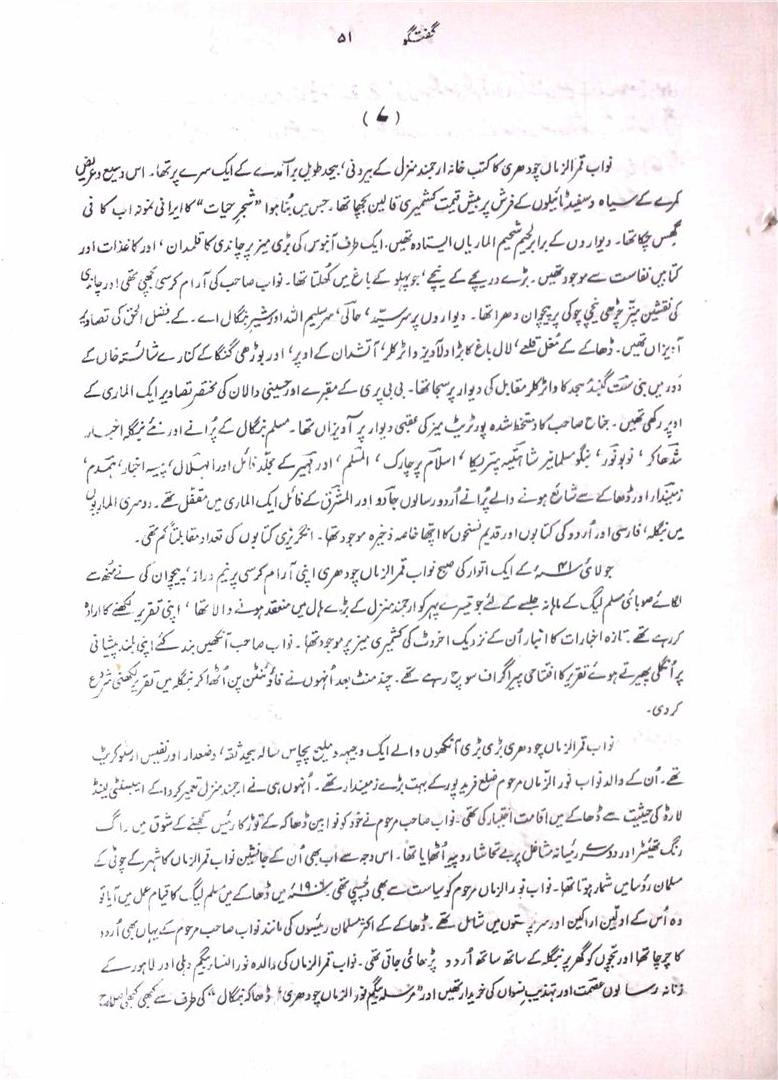 گفتگو ۵۱
(۷)
نواب قمرالزماں چودھری کا کتب خانہ ارجمند منزل کے بیرونی، بیحد طویل برآمدے کے ایک سرے پر تھا۔ اس وسیع و عریض
کمرے کے سیاہ و سفید ٹائیلوں کے فرش پر بیش قیمت کشمیری قالین بچھا تھا۔ جس میں بُنا ہوا "شجرِ حیات" کا ایرانی نمونہ اب کافی
گھس چکا تھا۔ دیواروں کے برابر لحیم شحیم الماریاں ایستادہ تھیں۔ ایک طرف آبنوس کی بڑی میز پر چاندی کا قلمدان، اور کاغذات اور
کتابیں نفاست سے موجود تھیں۔ بڑے دریچے کے نیچے، جو پہلو کے باغ میں کھلتا تھا۔ نواب صاحب کی آرام کرسی بچھی تھی! اور چاندی
کی نقشین پتر چڑھی نیچی چوکی پر پیچوان دھرا تھا۔ دیواروں پر سرسید، حالی، سر سلیم اللہ اور شیر بنگال اے۔ کے فضل الحق کی تصاویر
آویزاں تھیں۔ ڈھاکے کے مُغل قلعے، لال باغ کا بڑا دلآویز واٹر کلر، آتشدان کے اوپر، اور بوڑھی گنگا کے کنارے شائستہ خاں کے
دَور میں بنی ہفت گنبد مسجد کا واٹر کلر مقابل کی دیوار پر سجا تھا۔ بی بی پری کے مقبرے اور حسینی دالان کی مختصر تصاویر ایک الماری کے
اوپر رکھی تھیں۔ جناح صاحب کا دستخط شدہ پورٹریٹ میز کی عقبی دیوار پر آویزاں تھا۔ مسلم بنگال کے پُرانے اور نئے بنگلہ اخبار
سُدھاکر، نوبونور، بنگو مسلمانیر شاہتیہ پتریکا، اسلام پرچارک، المسلم، اور مہیر کے مجلّد فائل اور الہلال، پیسہ اخبار، ہمدم،
زمیندار اور ڈھاکے سے شائع ہونے والے پُرانے اُردو رسالوں جادو اور المشرق کے فائل ایک الماری میں مقفل تھے۔ دوسری الماریوں
میں بنگلہ، فارسی اور اُردو کی کتابوں اور قدیم نسخوں کا اچھا خاصہ ذخیرہ موجود تھا۔ انگریزی کتابوں کی تعداد مقابلتاً کم تھی۔
جولائی ۴۱ءکے ایک اتوار کی صبح نواب قمرالزماں چودھری اپنی آرام کرسی پر نیم دراز، پیچوان کی نے مُنھ سے
لگائے صوبائی مسلم لیگ کے ماہانہ جلسے کے لئے جو تیسرے پہر کو ارجمند منزل کے بڑے ہال میں منعقد ہونے والا تھا، اپنی تقریر لکھنے کا ارادہ
کر رہے تھے۔ تازہ اخبارات کا انبار اُن کے نزدیک اخروٹ کی کشمیری میز پر موجود تھا۔ نواب صاحب آنکھیں بند کئے! اپنی بلند پیشانی
پر اُنگلی پھیرتے ہوئے تقریر کا افتتاحی پیراگراف سوچ رہے تھے۔ چند منٹ بعد اُنہوں نے فاؤنٹین پن اُٹھا کر بنگلہ میں تقریر لکھنی شروع
کر دی۔
نواب قمرالزماں چودھری بڑی بڑی آنکھوں والے ایک وجیہہ و ملیح پچاس سالہ بیحد ثقہ، وضعدار اور نفیس ارسٹوکریٹ
تھے۔ اُن کے والد نواب نورالزماں مرحوم ضلع فرید پور کے بہت بڑے زمیندار تھے۔ اُنہوں ہی نے ارجمند منزل تعمیر کروا کے ایبسنٹی لینڈ
لارڈ کی حیثیت سے ڈھاکے میں اقامت اختیار کی تھی۔ نواب صاحب مرحوم نے خود کو نوابین ڈھاکہ کے توڑ کا رئیس سمجھنے کے شوق میں راگ
رنگ تھیٹر اور دوسرے رئیسانہ مشاغل پر بے تحاشا روپیہ اُٹھایا تھا۔ اس وجہ سے اب بھی اُن کے جانشین نواب قمرالزماں کا شہر کے چوٹی کے
مسلمان رؤسا میں شمار ہوتا تھا۔ نواب نورالزماں مرحوم کو سیاست سے بھی دلچسپی تھی۔ ۱۹۰۶ء میں ڈھاکے میں مسلم لیگ کا قیام عمل میں آیا تو
وہ اُس کے اولین اراکین اور سرپرستوں میں شامل تھے۔ ڈھاکے کے اکثر مسلمان رئیسوں کی مانند نواب صاحب مرحوم کے یہاں بھی اُردو
کا چرچا تھا اور بچّوں کو گھر پر بنگلہ کے ساتھ ساتھ اُردو پڑھائی جاتی تھی۔ نواب قمرالزماں کی والدہ نورالنساء بیگم دہلی اور لاہور کے
زنانہ رسالوں عصمت اور تہذیب نسواں کی خریدار تھیں اور "مرسلہ بیگم نورالزماں چودھری، ڈھاکہ بنگال" کی طرف سے کبھی کبھی